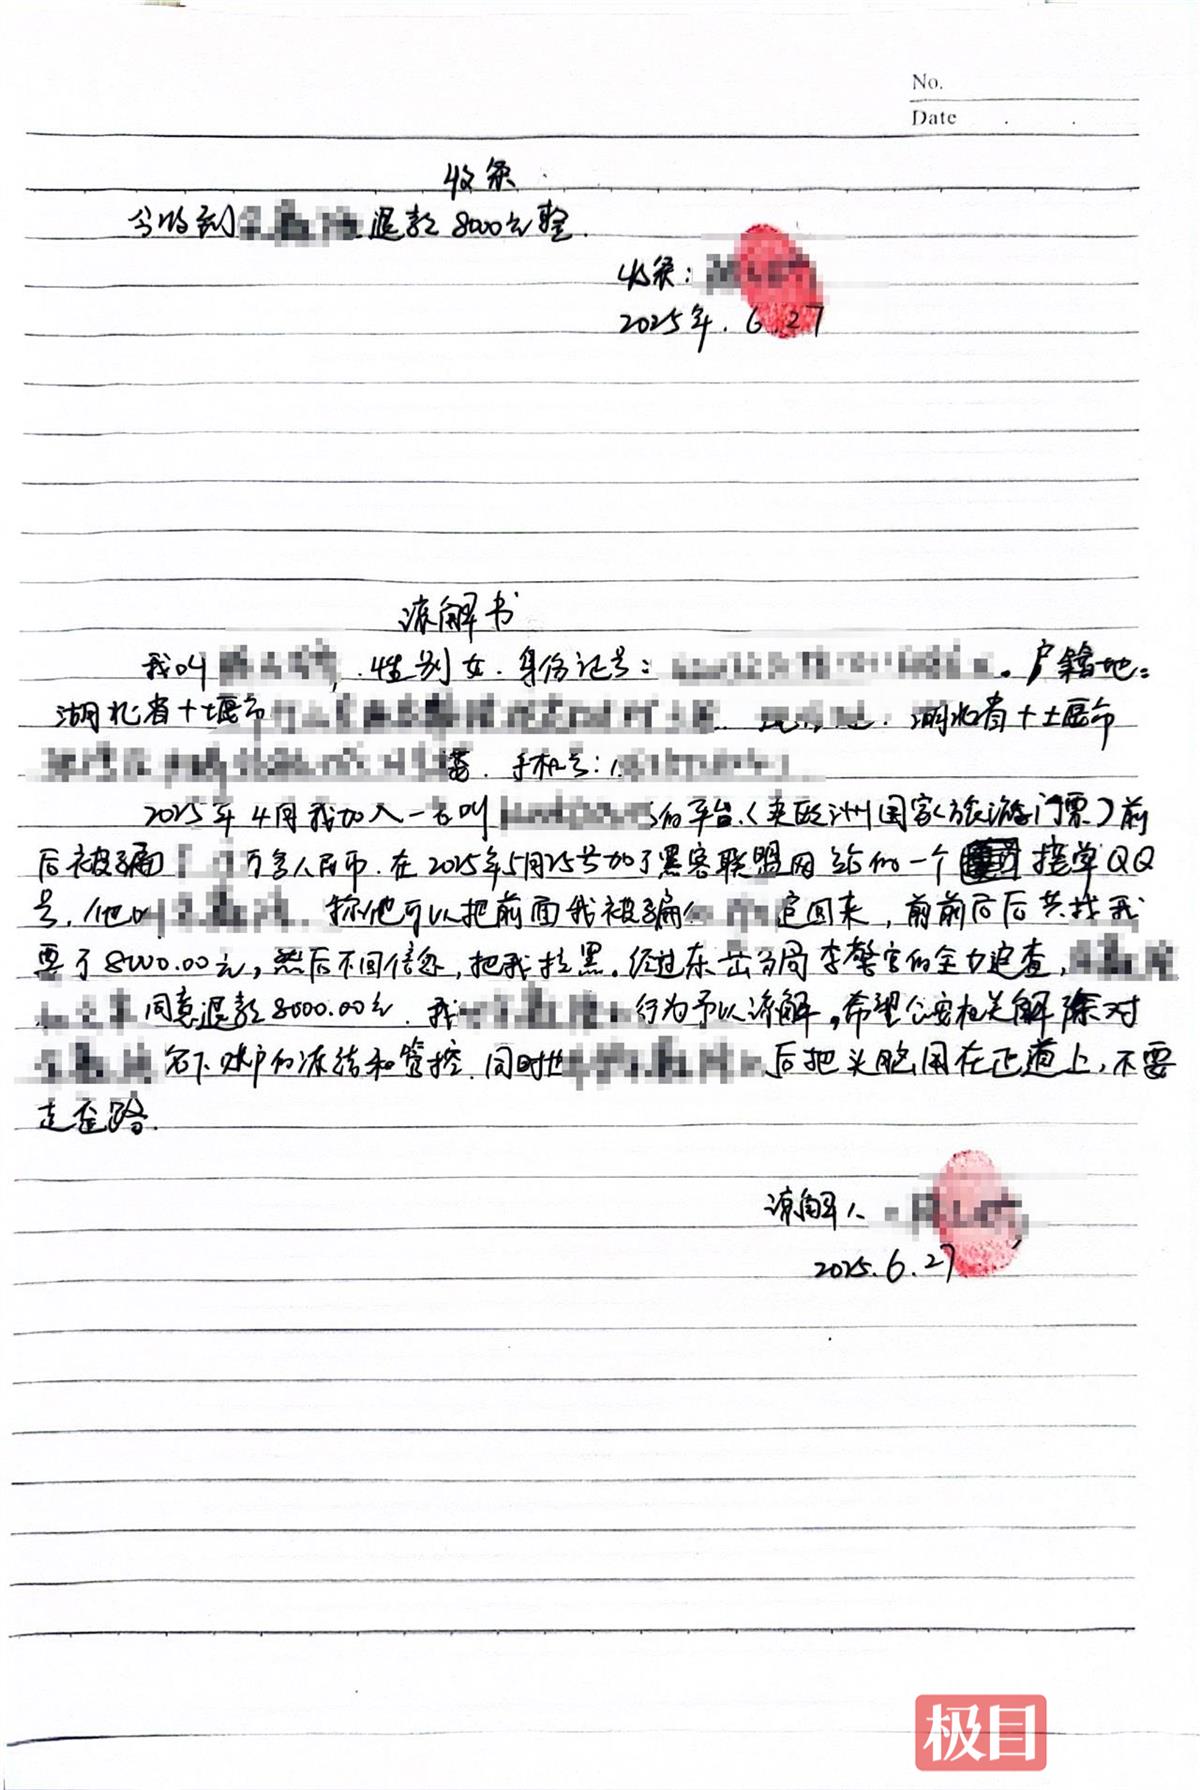 No.
Date
收条
今收到 退款8000元整.
收条:
2025年.6.27
谅解书
我叫 性别女.身份证号: 。户籍地:
湖北省十堰市 湖北省十堰市
手机号:1
2025年4月我加入一个叫 的平台(卖欧洲国家旅游门票)前
后被骗 万多人民币.在2025年5月25号加了黑客联盟网给的一个 接单QQ
号,他叫 称他可以把前面我被骗 追回来,前前后后共找我
要了8000.00元,然后不回信息,把我拉黑。经过东岳分局李警官的全力追查,
同意退款8000.00元.我 行为予以谅解,希望公安机关解除对
名下账户的冻结和管控.同时也 后把头脑用在正道上,不要
走歪路.
谅解人
2025.6.27
极目